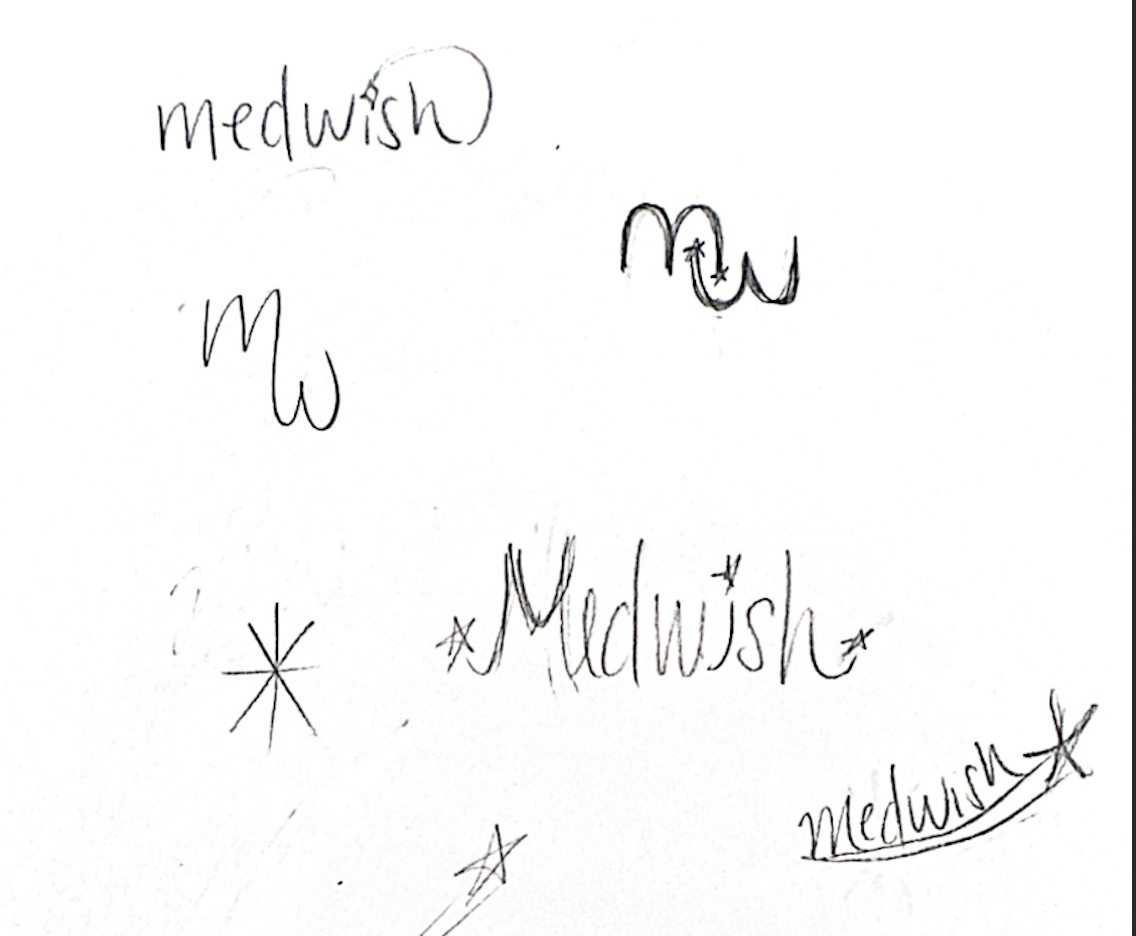 medwish
mw
mw
Medwish
medwish